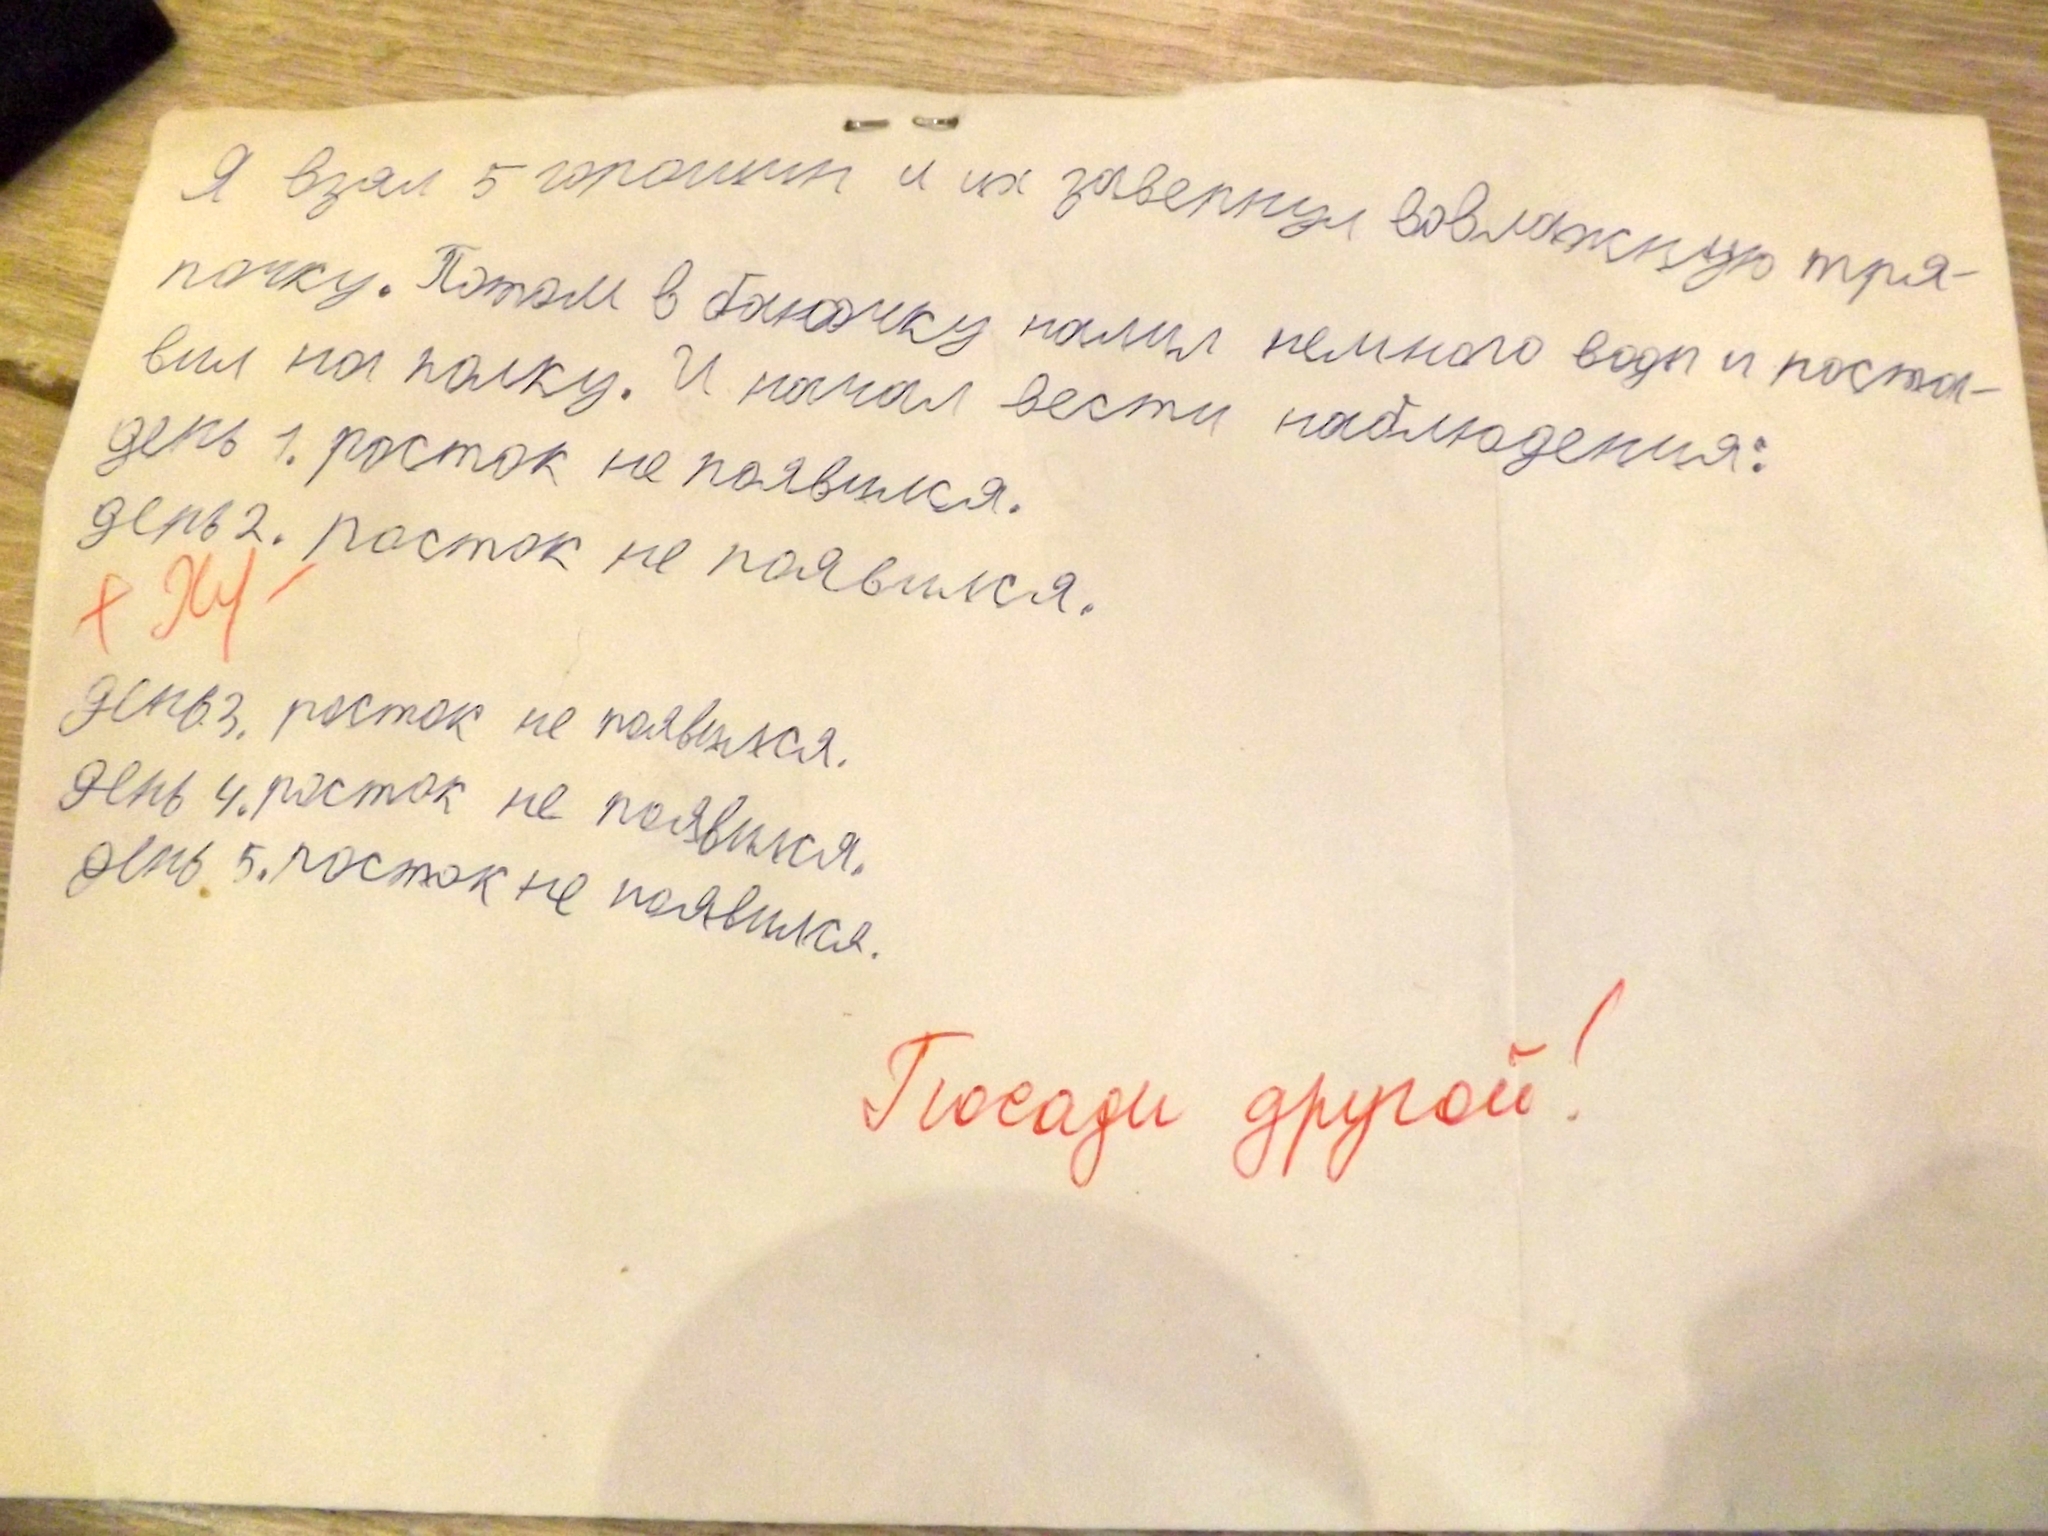 Я взял 5 горошин и их завернул вовлажную тря-
почку. Потом в баночку налил немного воды и поста-
вил на полку. И начал вести наблюдения:
день 1. росток не появился.
день 2. росток не появился.
день 3. росток не появился.
день 4. росток не появился.
день 5. росток не появился.
Посади другой!